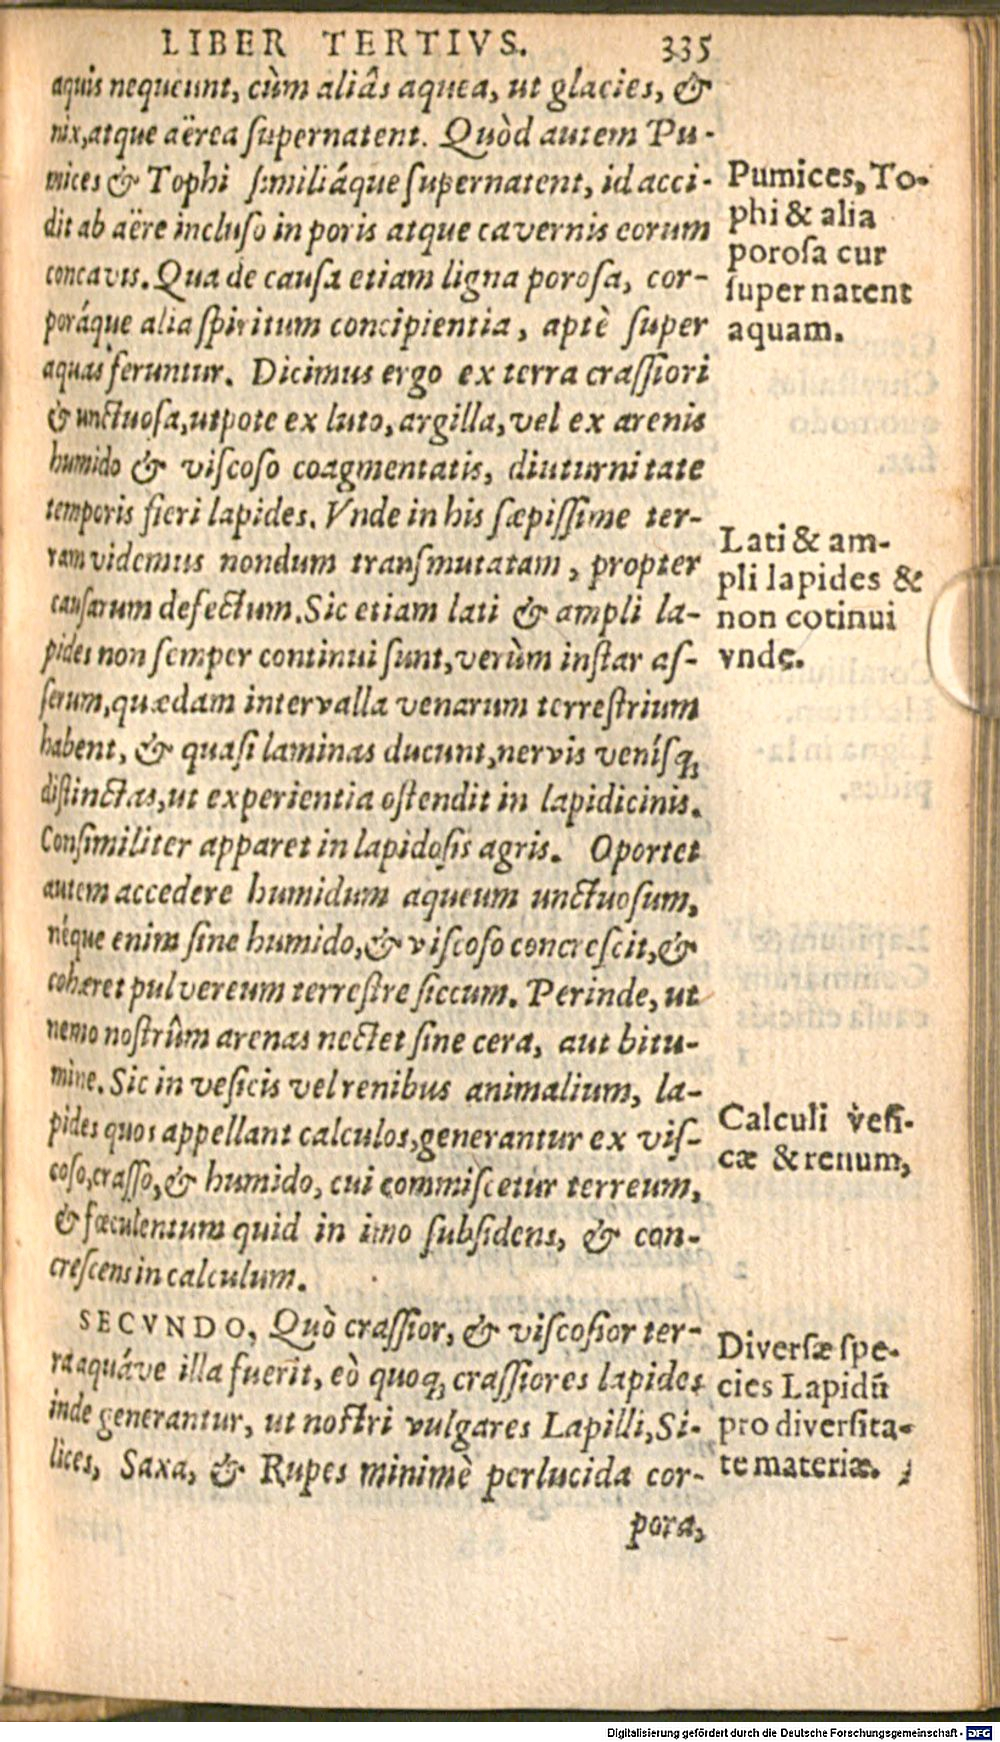 LIBER TERTIVS. 335
aquis nequeunt, cùm aliâs aquea, ut glacies, &
nix, atque aërea supernatent. Quòd autem Pu-
mices & Tophi similiáque supernatent, id acci-
dit ab aëre incluso in poris atque cavernis eorum
concavis. Qua de causa etiam ligna porosa, cor-
poráque alia spiritum concipientia, aptè super
aquas feruntur. Dicimus ergo ex terra crassiori
& unctuosa, utpote ex luto, argilla, vel ex arenis
humido & viscoso coagmentatis, diuturnitate
temporis fieri lapides. Vnde in his sæpissime ter-
ram videmus nondum transmutatam, propter
causarum defectum. Sic etiam lati & ampli la-
pides non semper continui sunt, verùm instar as-
serum, quædam intervalla venarum terrestrium
habent, & quasi laminas ducunt, nervis venísq;
distinctas, ut experientia ostendit in lapidicinis.
Consimiliter apparet in lapidosis agris. Oportet
autem accedere humidum aqueum unctuosum,
néque enim sine humido, & viscoso concrescit, &
cohæret pulvereum terrestre siccum. Perinde, ut
nemo nostrûm arenas nectet sine cera, aut bitu-
mine. Sic in vesicis vel renibus animalium, la-
pides quos appellant calculos, generantur ex vis-
coso, crasso, & humido, cui commiscetur terreum,
& fœculentum quid in imo subsidens, & con-
crescens in calculum.
SECVNDO, Quò crassior, & viscosior ter-
ra aquáve illa fuerit, eò quoq; crassiores lapides
inde generantur, ut nostri vulgares Lapilli, Si-
lices, Saxa, & Rupes minimè perlucida cor-
pora,
Pumices, To-
phi & alia
porosa cur
super natent
aquam.
Lati & am-
pli lapides &
non cōtinui
vnde.
Calculi vesi-
cæ & renum,
Diversæ spe-
cies Lapidū
pro diversita-
te materiæ.
Digitalisierung gefördert durch die Deutsche Forschungsgemeinschaft - DFG